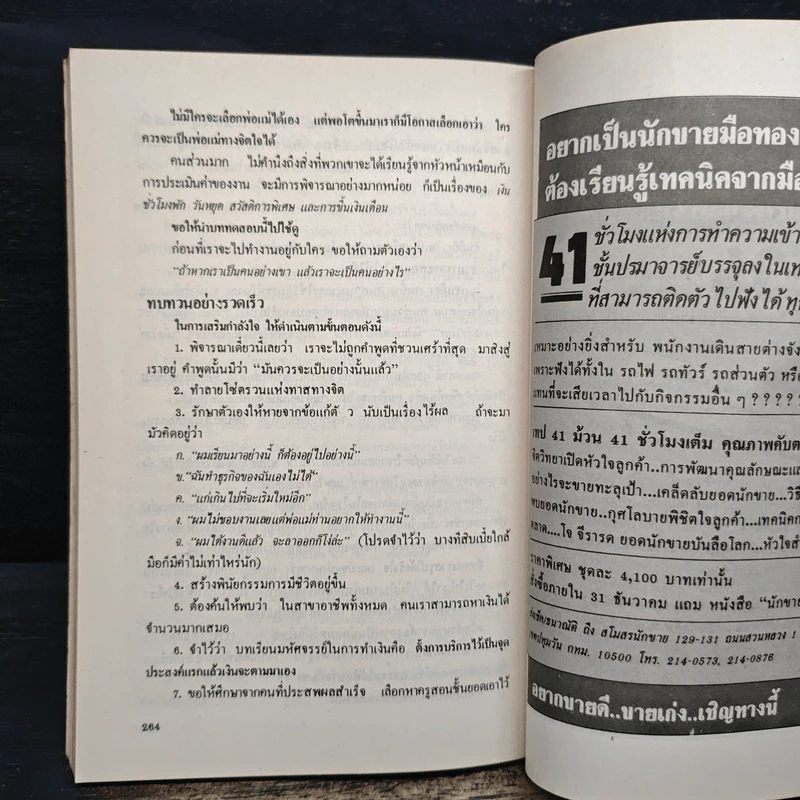 ไม่มีใครจะเลือกพ่อแม่ได้เอง แต่พอโตขึ้นมาเราก็มีโอกาสเลือกเอาว่า ใคร
ควรจะเป็นพ่อแม่ทางจิตใจได้
คนส่วนมาก ไม่คำนึงถึงสิ่งที่พวกเขาจะได้เรียนรู้จากหัวหน้าเหมือนกับ
การประเมินค่าของงาน จะมีการพิจารณาอย่างมากหน่อย ก็เป็นเรื่องของ เงิน
ชั่วโมงพัก วันหยุด สวัสดิการพิเศษ และการขึ้นเงินเดือน
ขอให้นำบททดสอบนี้ไปใช้ดู
ก่อนที่เราจะไปทำงานอยู่กับใคร ขอให้ถามตัวเองว่า
"ถ้าหากเราเป็นคนอย่างเขา แล้วเราจะเป็นคนอย่างไร"
ทบทวนอย่างรวดเร็ว
ในการเสริมกำลังใจ ให้ดำเนินตามขั้นตอนดังนี้
1. พิจารณาเดี๋ยวนี้เลยว่า เราจะไม่ถูกคำพูดที่ชวนเศร้าที่สุด มาสิงสู่
เราอยู่ คำพูดนั้นมีว่า "มันควรจะเป็นอย่างนั้นแล้ว"
2. ทำลายโซ่ตรวนแห่งทาสทางจิต
3. รักษาตัวเองให้หายจากข้อแก้ตัว นับเป็นเรื่องไร้ผล ถ้าจะมา
มัวคิดอยู่ว่า
ก. "ผมเรียนมาอย่างนี้ ก็ต้องอยู่ไปอย่างนี้"
ข. "ฉันทำธุรกิจของฉันเองไม่ได้"
ค. "แก่เกินไปที่จะเริ่มใหม่อีก"
ง. "ผมไม่ชอบงานเลยแต่พ่อแม่ท่านอยากให้ทำงานนี้"
จ. "ผมได้งานดีแล้ว จะลาออกก็โง่ล่ะ" (โปรดจำไว้ว่า บางทีสิบเบี้ยใกล้
มือก็มีค่าไม่เท่าไหร่นัก)
4. สร้างพินัยกรรมการมีชีวิตอยู่ขึ้น
5. ต้องค้นให้พบว่า ในสาขาอาชีพทั้งหมด คนเราสามารถหาเงินได้
จำนวนมากเสมอ
6. จำไว้ว่า บทเรียนมหัศจรรย์ในการทำเงินคือ ตั้งการบริการไว้เป็นจุด
ประสงค์แรกแล้วเงินจะตามมาเอง
7. ขอให้ศึกษาจากคนที่ประสพผลสำเร็จ เลือกหาครูสอนชั้นยอดเอาไว้
264
อยากเป็นนักขายมือทอง
ต้องเรียนรู้เทคนิคจากมือ
41 ชั่วโมงแห่งการทำความเข้า
ชั้นปรมาจารย์บรรจุลงในเท
ที่สามารถติดตัว ไปฟังได้ ทุก
เหมาะอย่างยิ่งสำหรับ พนักงานเดินสายต่างจัง
เพราะฟังได้ทั้งใน รถไฟ รถทัวร์ รถส่วนตัว หรือ
แทนที่จะเสียเวลาไปกับกิจกรรมอื่น ๆ ? ? ? ? ?
เทป 41 ม้วน 41 ชั่วโมงเต็ม คุณภาพคับต
จิตวิทยาเปิดหัวใจลูกค้า..การพัฒนาคุณลักษณะแล
อย่างไรจะขายทะลุเป้า...เคล็ดลับยอดนักขาย...วิธี
พบยอดนักขาย..กุศโลบายพิชิตใจลูกค้า...เทคนิคก
ตลาด....โจ จีราร์ด ยอดนักขายบันลือโลก...หัวใจสำ
ราคาพิเศษ ชุดละ 4,100 บาทเท่านั้น
สั่งซื้อภายใน 31 ธันวาคม แถม หนังสือ "นักขาย
ส่งเช็ค/ธนาณัติ ถึง สโมสรนักขาย 129-131 ถนนสวนหลวง 1
เขตปทุมวัน กทม. 10500 โทร. 214-0573, 214-0876
อยากขายดี..ขายเก่ง..เชิญทางนี้